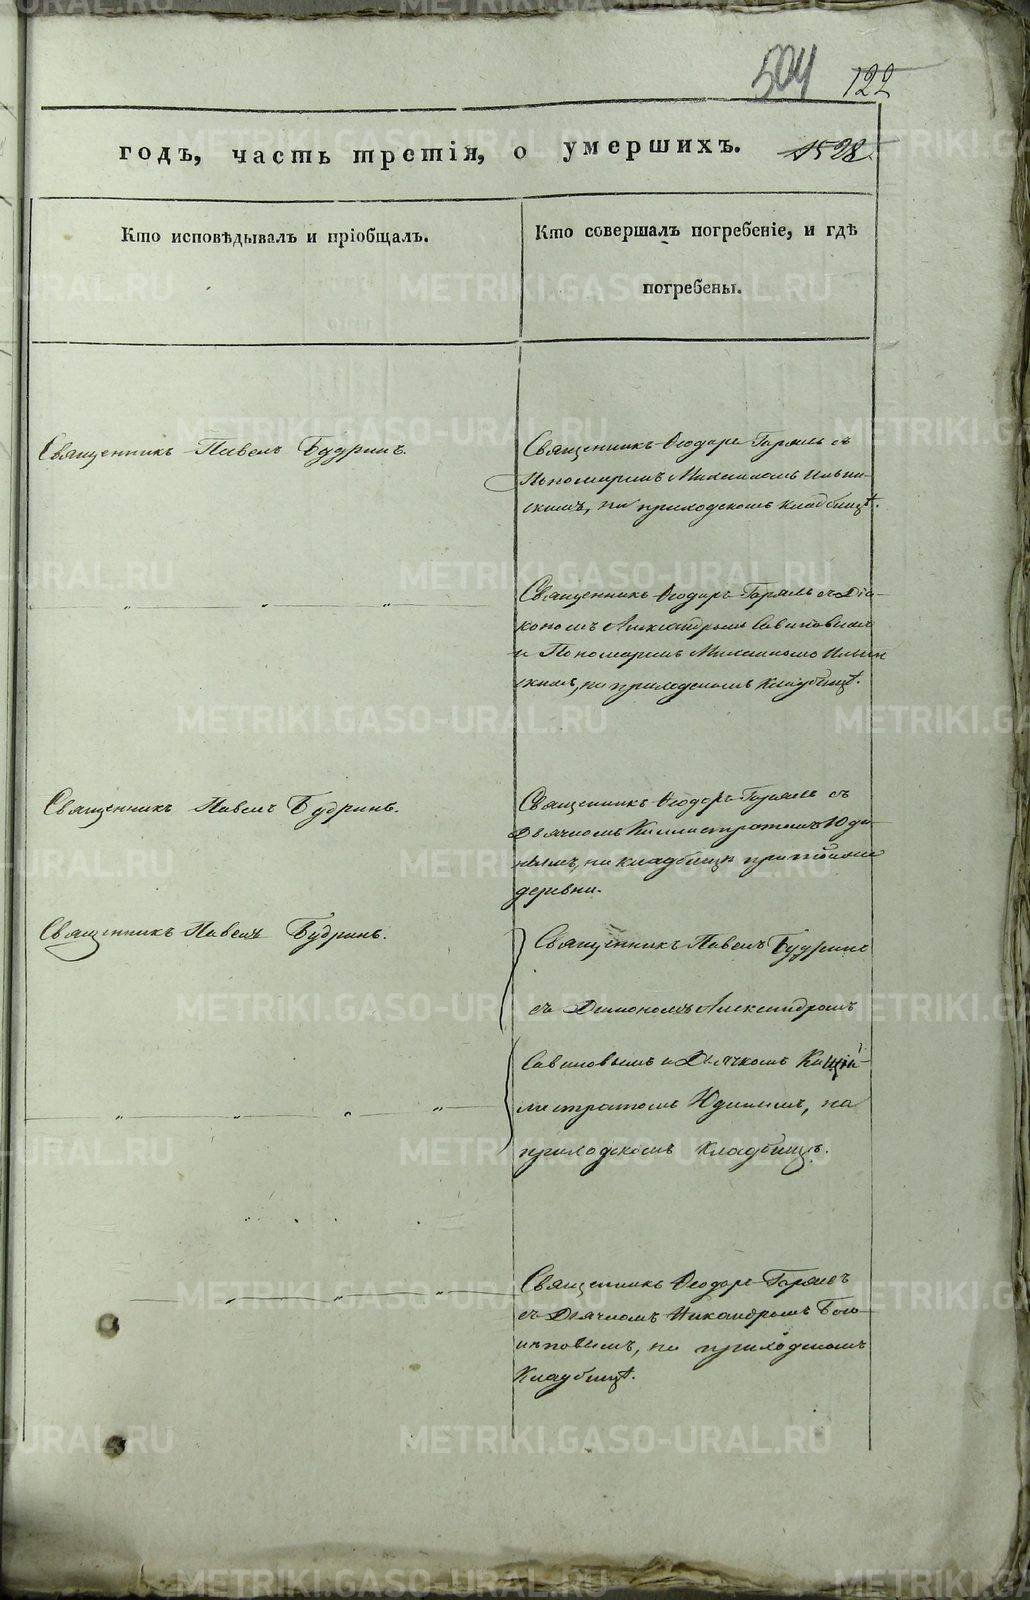 504 122
годъ, часть третія, о умершихъ. 1528.
Кто исповѣдывалъ и пріобщалъ.
Кто совершалъ погребеніе, и гдѣ
погребены.
Священникъ Павелъ Будринъ.
Священникъ Ѳеодоръ Горяевъ съ
Пономаремъ Михаиломъ Ильин-
скимъ, на приходскомъ кладбищѣ.
Священникъ Ѳеодоръ Горяевъ съ Діа-
кономъ Александромъ Савиновымъ
и Пономаремъ Михаиломъ Ильин
скимъ, на приходскомъ кладбищѣ.
Священникъ Павелъ Будринъ.
Священникъ Ѳеодоръ Горяевъ съ
Дьячкомъ Каллистратомъ Юди-
нымъ, на кладбищѣ при
деревни.
Священникъ Павелъ Будринъ.
Священникъ Павелъ Будринъ
съ Діакономъ Александромъ
Савиновымъ и Дьячкомъ
Юдинымъ, на
приходскомъ кладбищѣ.
Священникъ Ѳеодоръ Горяевъ
съ Дьячкомъ Никандромъ
на приходскомъ
Кладбищѣ.
METRIKI.GASO-URAL.RU